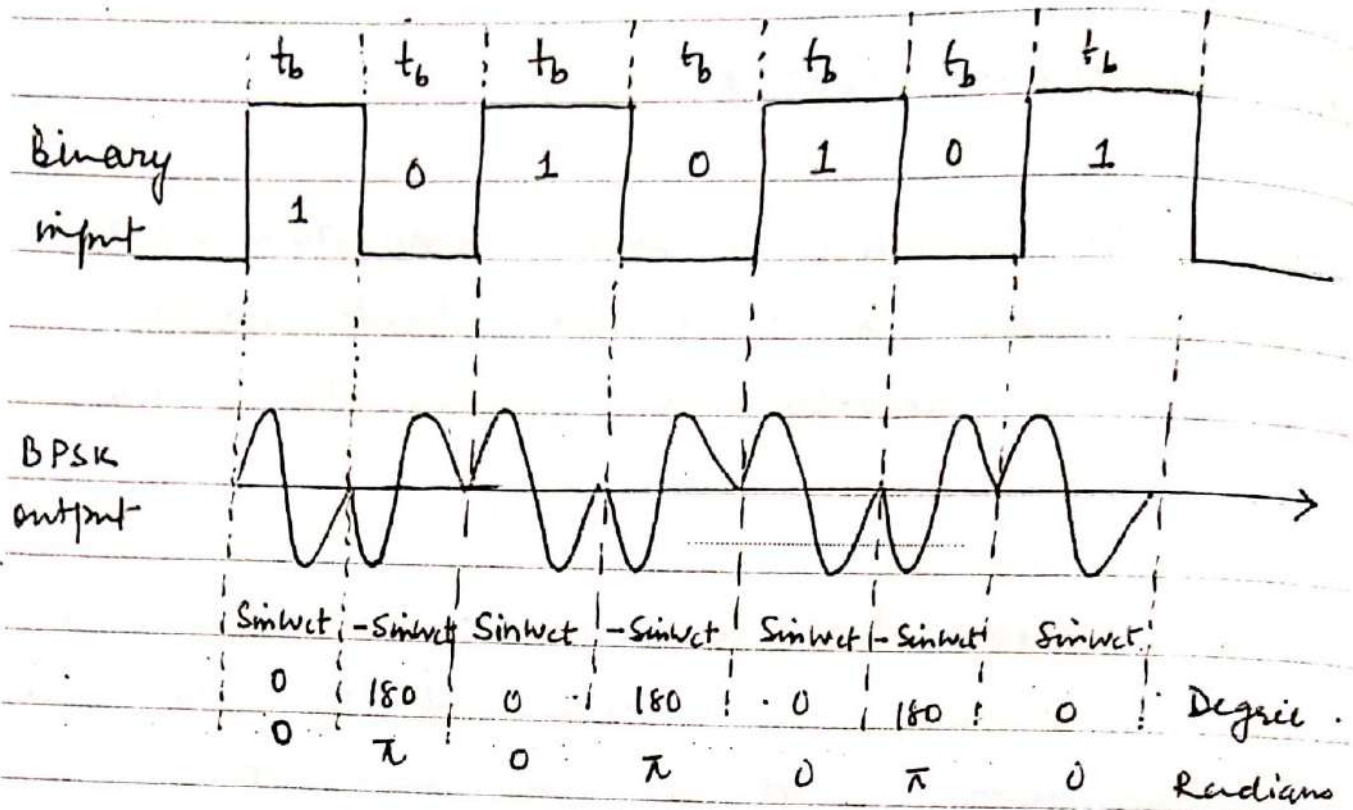 tb tb tb tb tb tb tb
Binary
input
1 0 1 0 1 0 1
BPSK
output
Sinwct -Sinwct Sinwct -Sinwct Sinwct -Sinwct Sinwct
0 180 0 180 0 180 0 Degree
0 π 0 π 0 π 0 Radians